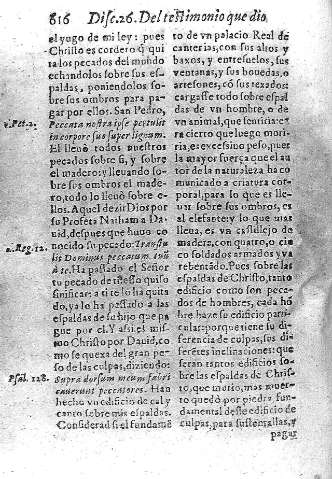 816 Disc. 26. Del testimonio que dio
el yugo de mi ley: pues
Christo es cordero q̃ qui
ta los pecados del mundo
echandolos sobre sus es-
paldas, poniendolos so-
bre sus ombros para pa-
gar por ellos. San Pedro,
1. Pet. 2.
Peccata nostra ipse pertulit
in corpore suo super lignum.
El lleuò todos nuestros
pecados sobre si, y sobre
el madero: y lleuando so-
bre sus ombros el made-
ro, todo lo lleuò sobre e-
llos. Aquel dezir Dios por
su Profeta Natham a Da
uid, despues que huuo co
nocido su pecado:
2. Reg. 12.
Transtu
lit Dominus peccatum tuũ
à te. Ha passado el Señor
tu pecado de ti: esso quiso
sinificar: a ti te lo ha quita
do, ya lo ha passado a las
espaldas de su hijo que pa
gue por el. Y assi el mis
mo Christo por Dauid, co
mo se quexa del gran pe-
so de las culpas, diziendo:
Psal. 128.
Supra dorsum meum fabri
cauerunt peccatores. Han
hecho vn edificio de cal y
canto sobre mis espaldas.
Considerad si el fundamẽ
to de vn palacio Real de
canterias, con sus altos y
baxos, y entresuelos, sus
ventanas, y sus bouedas, o
artesones, cõ sus texados:
cargasse todo sobre espal
das de vn hombre, o de
vn animal, que sentiria: es
ra cierto que luego mori-
ria, es excessiuo peso, pues
la mayor fuerça que el au
tor de la naturaleza ha co
municado a criatura cor-
poral, para lo que es lle-
uar sobre sus ombros, es
al elefante: y lo que mas
lleua, es vn castillejo de
madera, con quatro, o cin
co soldados armados y va
rebentado. Pues sobre las
espaldas de Christo, tanto
edificio como son peca-
dos de hombres, cada hõ
bre haze su edificio parti-
cular: porque tiene su di-
ferencia de culpas, sus di-
ferẽtes inclinaciones: que
seran tantos edificios so-
bre las espaldas de Chris-
to, que murio, mas muer-
to quedò por piedra fun-
damental deste edificio de
culpas, para sustentallas, y
pagar